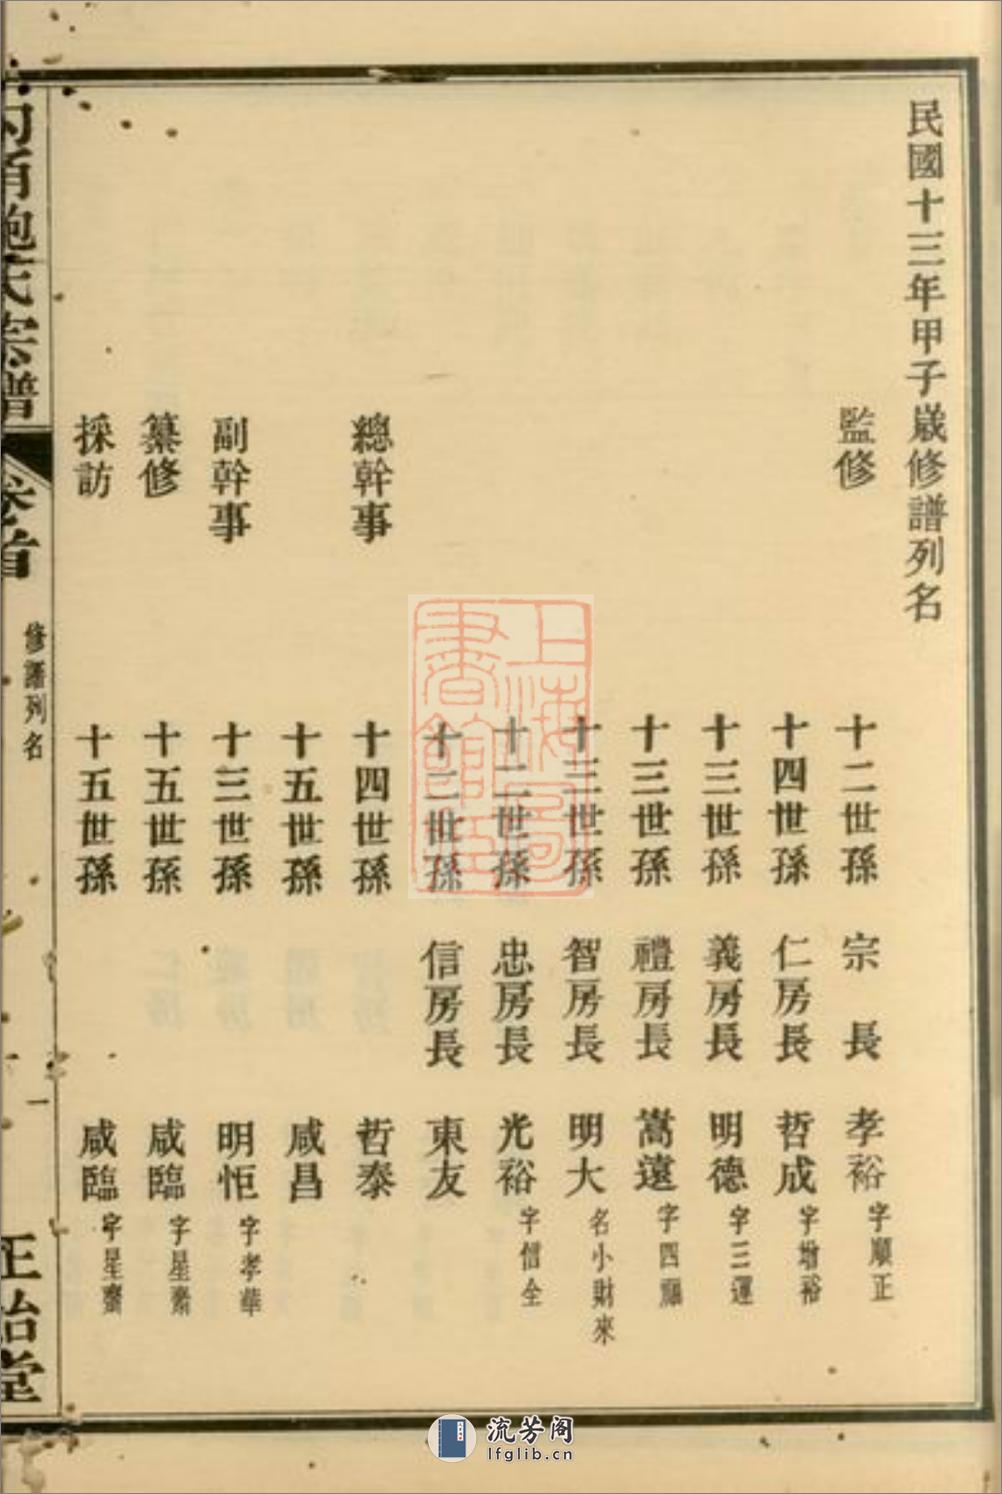 民國十三年甲子歲修譜列名
監修 十二世孫 宗長 孝裕 字順正
十四世孫 仁房長 哲成 字增裕
十三世孫 義房長 明德 字三運
十三世孫 禮房長 嵩遠 字四
十三世孫 智房長 明大 名小財來
十二世孫 忠房長 光裕 字信全
十二世孫 信房長 東友
總幹事 十四世孫 哲泰
十五世孫 咸昌
副幹事 十三世孫 明恒 字孝華
纂修 十五世孫 咸臨 字星素
採訪 十五世孫 咸臨 字星齋
鮑氏宗譜 卷首 修譜列名 一 正始堂
上海圖書館藏
流芳阁
lfglib.cn